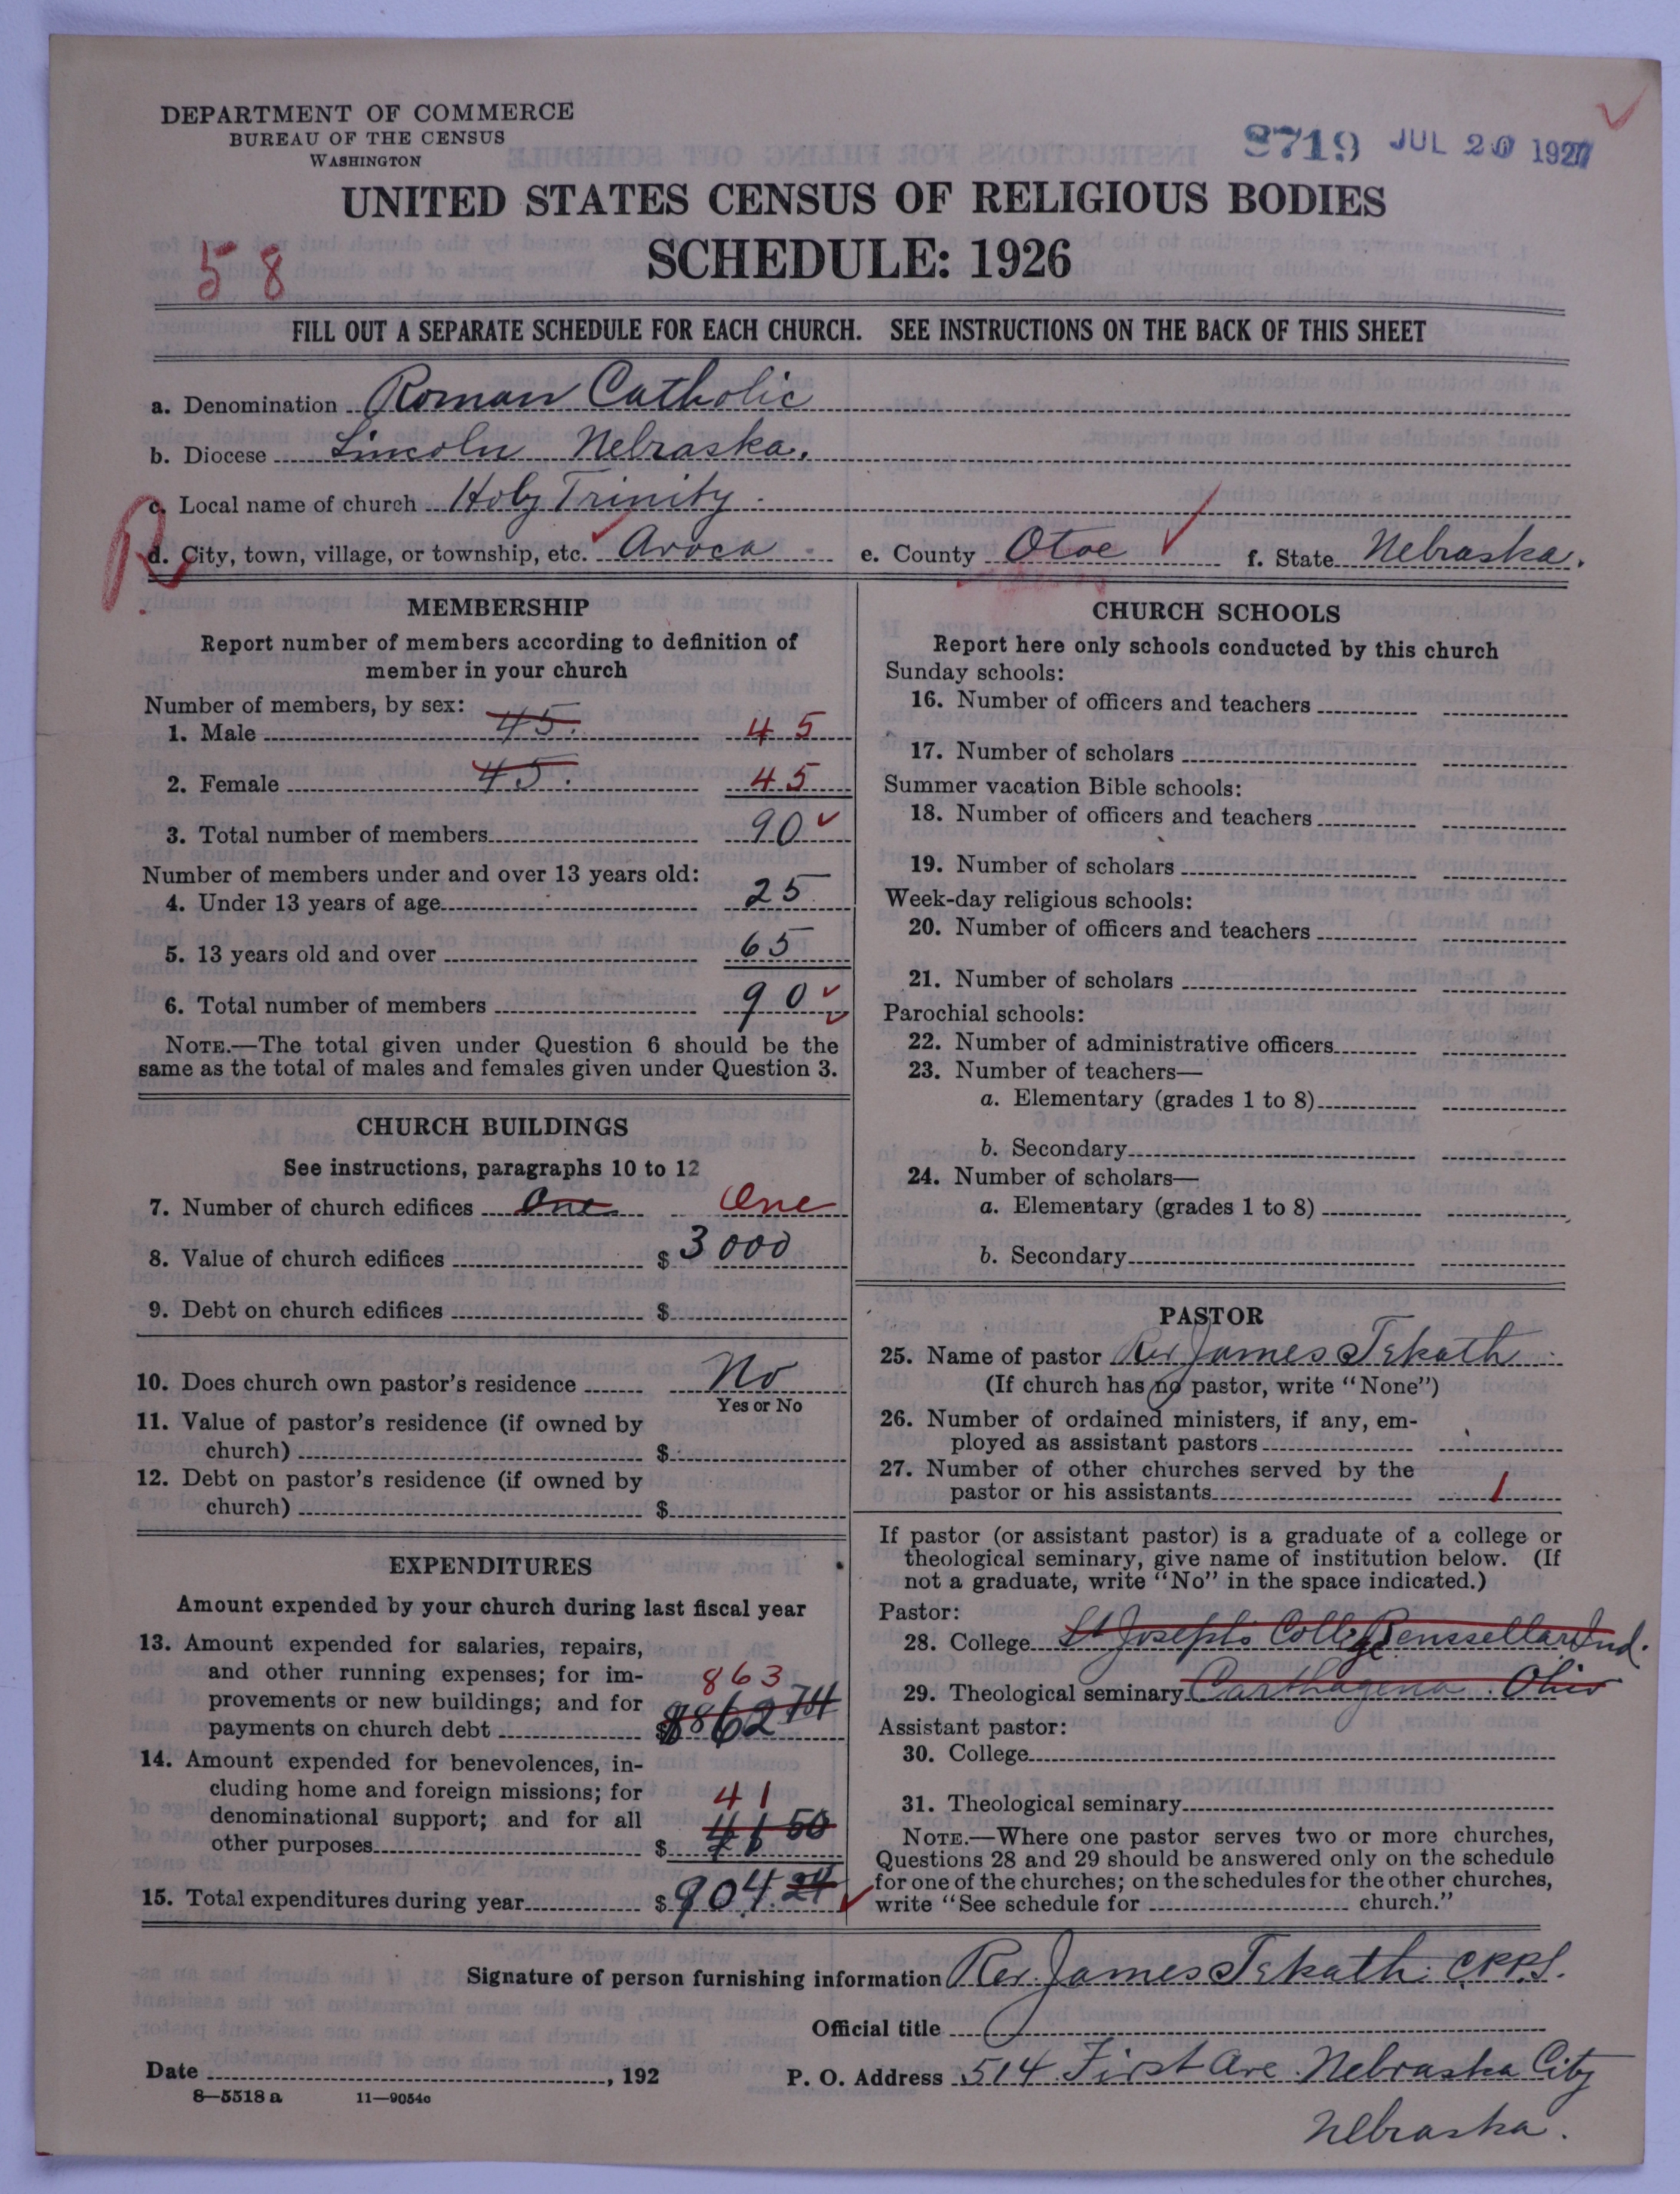 DEPARTMENT OF COMMERCE
BUREAU OF THE CENSUS
WASHINGTON
8719 JUL 20 1927
UNITED STATES CENSUS OF RELIGIOUS BODIES
SCHEDULE: 1926
58
FILL OUT A SEPARATE SCHEDULE FOR EACH CHURCH. SEE INSTRUCTIONS ON THE BACK OF THIS SHEET
a. Denomination Roman Catholic
b. Diocese Lincoln Nebraska.
c. Local name of church Holy Trinity.
R
d. City, town, village, or township, etc. Avoca e. County Otoe f. State Nebraska.
MEMBERSHIP
Report number of members according to definition of
member in your church
Number of members, by sex:
1. Male 45. 45
2. Female 45. 45
3. Total number of members 90
Number of members under and over 13 years old:
4. Under 13 years of age 25
5. 13 years old and over 65
6. Total number of members 90
NOTE.—The total given under Question 6 should be the
same as the total of males and females given under Question 3.
CHURCH BUILDINGS
See instructions, paragraphs 10 to 12
7. Number of church edifices One One
8. Value of church edifices $ 3000
9. Debt on church edifices $
10. Does church own pastor's residence No
Yes or No
11. Value of pastor's residence (if owned by
church) $
12. Debt on pastor's residence (if owned by
church) $
EXPENDITURES
Amount expended by your church during last fiscal year
13. Amount expended for salaries, repairs,
and other running expenses; for im-
provements or new buildings; and for
payments on church debt $ 862 74 863
14. Amount expended for benevolences, in-
cluding home and foreign missions; for
denominational support; and for all
other purposes $ 41 50 41
15. Total expenditures during year $ 904.24
CHURCH SCHOOLS
Report here only schools conducted by this church
Sunday schools:
16. Number of officers and teachers
17. Number of scholars
Summer vacation Bible schools:
18. Number of officers and teachers
19. Number of scholars
Week-day religious schools:
20. Number of officers and teachers
21. Number of scholars
Parochial schools:
22. Number of administrative officers
23. Number of teachers—
a. Elementary (grades 1 to 8)
b. Secondary
24. Number of scholars—
a. Elementary (grades 1 to 8)
b. Secondary
PASTOR
25. Name of pastor Rev James Tekath
(If church has no pastor, write "None")
26. Number of ordained ministers, if any, em-
ployed as assistant pastors
27. Number of other churches served by the
pastor or his assistants 1
If pastor (or assistant pastor) is a graduate of a college or
theological seminary, give name of institution below. (If
not a graduate, write "No" in the space indicated.)
Pastor:
28. College St Josephs College Renssellar Ind.
29. Theological seminary Carthagena. Ohio
Assistant pastor:
30. College
31. Theological seminary
NOTE.—Where one pastor serves two or more churches,
Questions 28 and 29 should be answered only on the schedule
for one of the churches; on the schedules for the other churches,
write "See schedule for church."
Signature of person furnishing information Rev. James Tekath. C.PP.S.
Official title
Date , 192 P. O. Address 514 First Ave Nebraska City
Nebraska.
8—5518 a 11—9054c